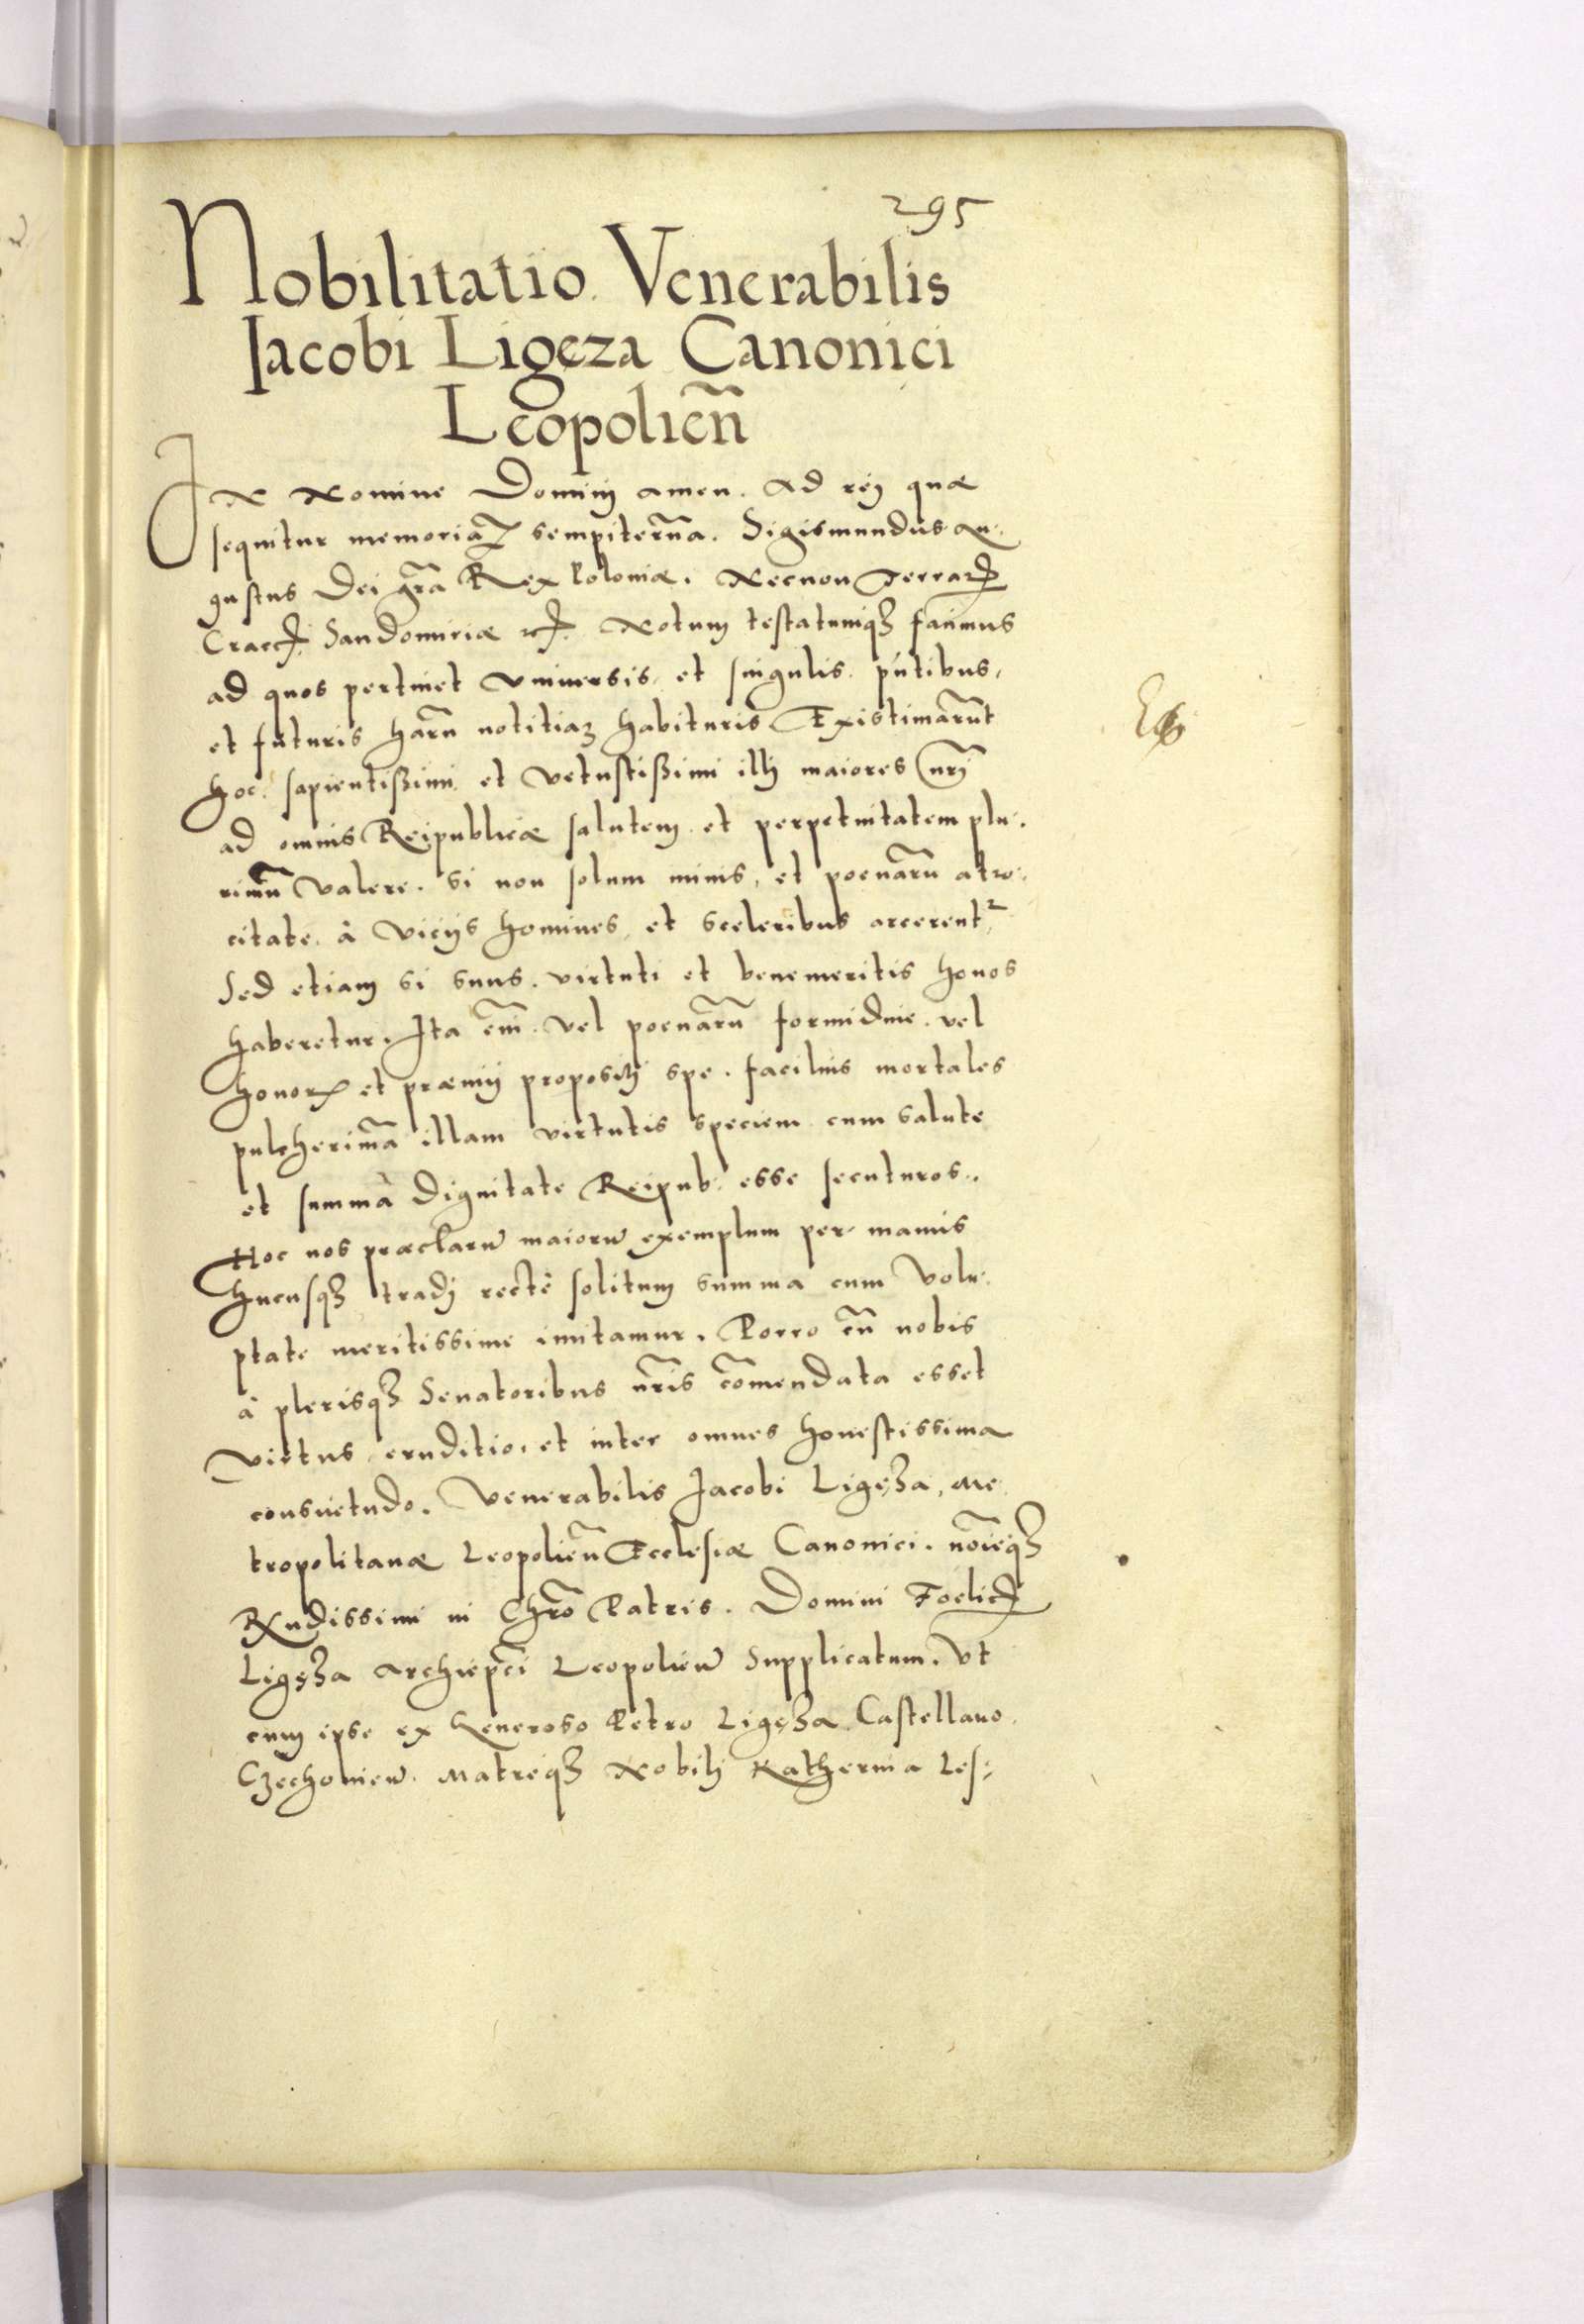 295
Nobilitatio Venerabilis
Jacobi Ligęza Canonici
Leopolien̄
IN Nomine Domini amen. Ad rej quæ
sequitur memoriaʒ sempiternā. Sigismundus Au-
gustus Dei grā Rex Poloniæ. Necnon Terrarꝝ
Cracꝭ. Sandomiriæ etꝭ. Notum testatumqʒ facimus
ad quos pertinet Universis et singulis pn̄tibus,
et futuris harū notitiaʒ habituris Existimarūt
hoc sapientißimi et vetustißimi illi maiores nr̄i
ad omnis Reipublicæ salutem et perpetuitatem plu-
rimū valere. Si non solum minis, et poenarū atro-
citate à vicijs homines et sceleribus arcerentᵘʳ
Sed etiam si suus virtuti et benemeritis honos
haberetur. Ita em̄. vel poenarū formidine. vel
honorꝭ et præmij propositi spe. facilius mortales
pulcherimā illam virtutis speciem cum salute
et summa Dignitate Reipub: esse secuturos.
Hoc nos præclarū maiorū exemplum per manus
hucusqʒ tradj rectè solitum summa cum Volu-
ptate meritissime imitamur. Porro cū nobis
à plerisqʒ Senatoribus nr̄is cōmendata esset
virtus, eruditio, et inter omnes honestissima
consuetudo. Venerabilis Jacobi Ligęʒa, Me-
tropolitanæ Leopolien̄ Ecclesiæ Canonici. noīeqʒ
Rx̄ndissimi in Chrō Patris. Domini Foelicꝭ
Ligęʒa Archiep̄ci Leopolien̄ Supplicatum. Ut
cum ipse ex Generoso Petro Ligęʒa Castellano
Czechovien̄. Matreqʒ Nobili Katherina Les-